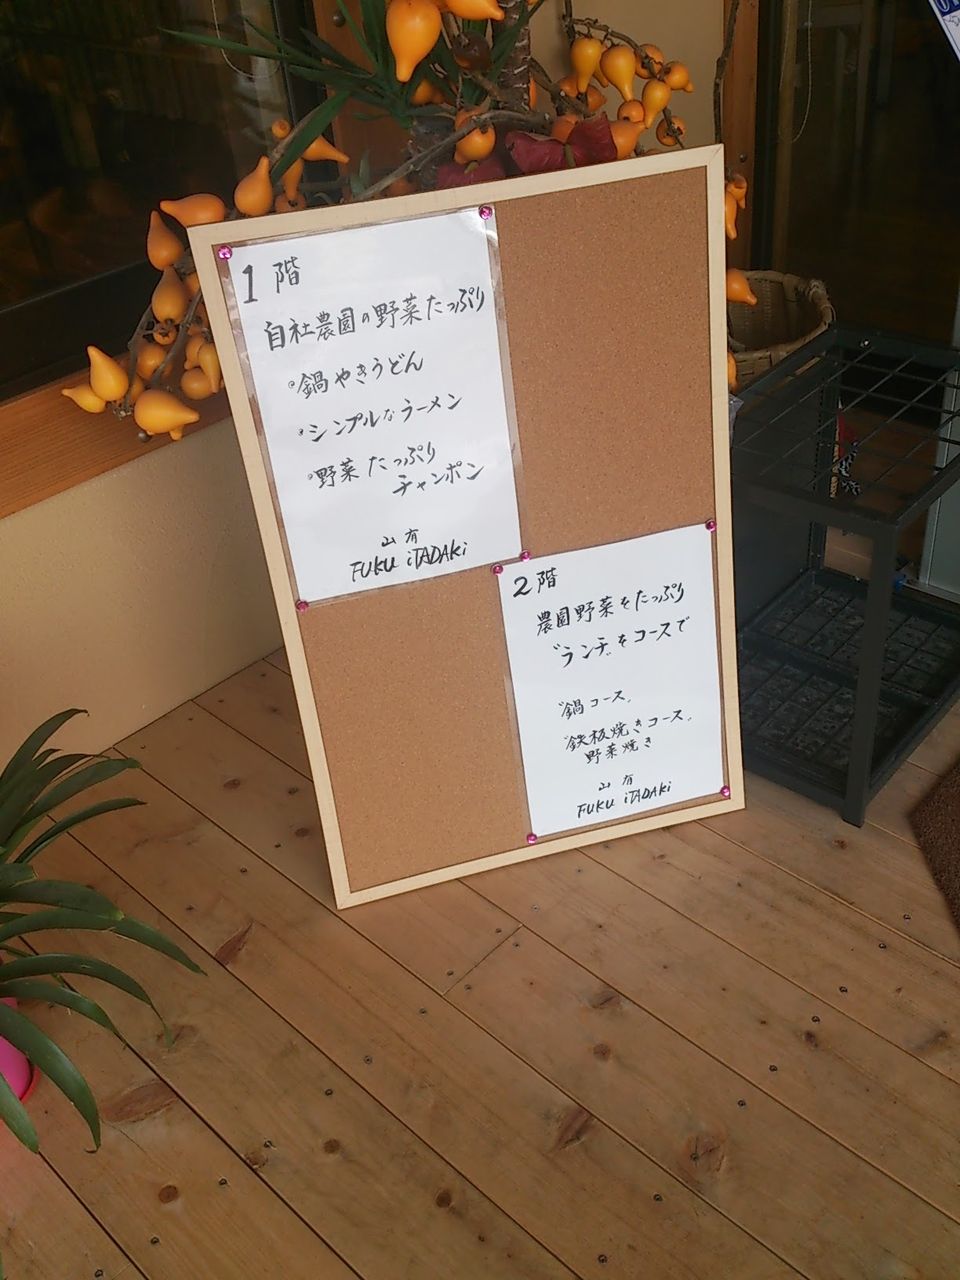 1階
自社農園の野菜たっぷり
◦鍋やきうどん
◦シンプルなラーメン
◦野菜たっぷり
チャンポン
山有
FUKU iTADAKi
2階
農園野菜をたっぷり
"ランチ"をコースで
"鍋コース"
"鉄板焼きコース"
野菜焼き
山有
FUKU iTADAKi